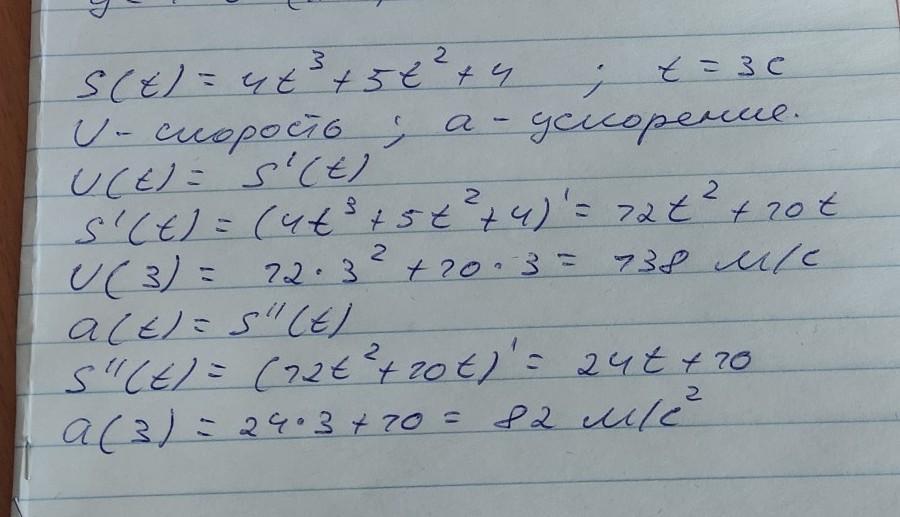 S(t) = 4t³ + 5t² + 4 ; t = 3с
υ - скорость ; a - ускорение.
υ(t) = S'(t)
S'(t) = (4t³ + 5t² + 4)' = 12t² + 10t
υ(3) = 12·3² + 10·3 = 138 м/с
a(t) = S''(t)
S''(t) = (12t² + 10t)' = 24t + 10
a(3) = 24·3 + 10 = 82 м/с²